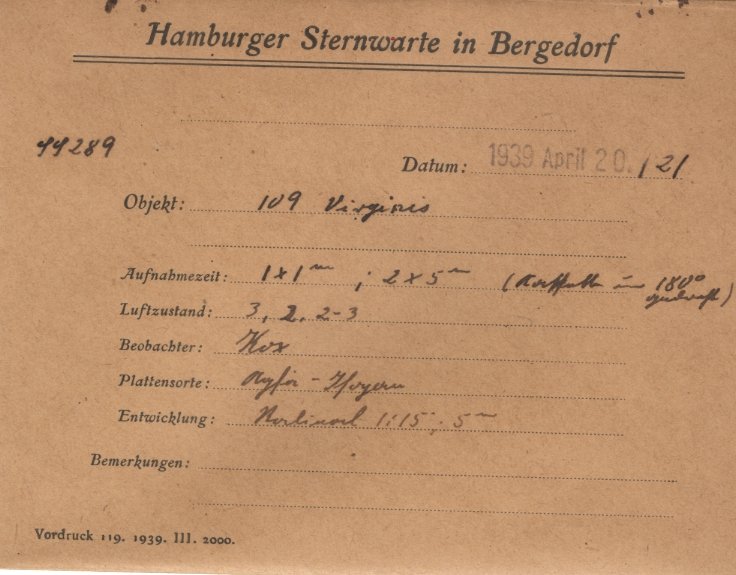 Hamburger Sternwarte in Bergedorf
44289
Datum: 1939 April 20./21
Objekt: 109 Virginis
Aufnahmezeit: 1x1ᵐ ; 2x5ᵐ (Kassette um 180°
gedreht)
Luftzustand: 3, 2, 2-3
Beobachter: Kox
Plattensorte: Agfa -
Entwicklung: Rodinal 1:15 ; 5ᵐ
Bemerkungen:
Vordruck 119. 1939. III. 2000.